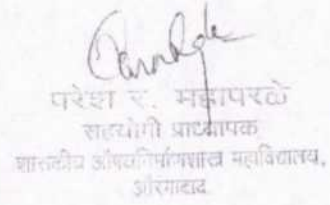 परेश र. महापरळे
सहयोगी प्राध्यापक
शासकीय औषधनिर्माणशास्त्र महाविद्यालय,
औरंगाबाद